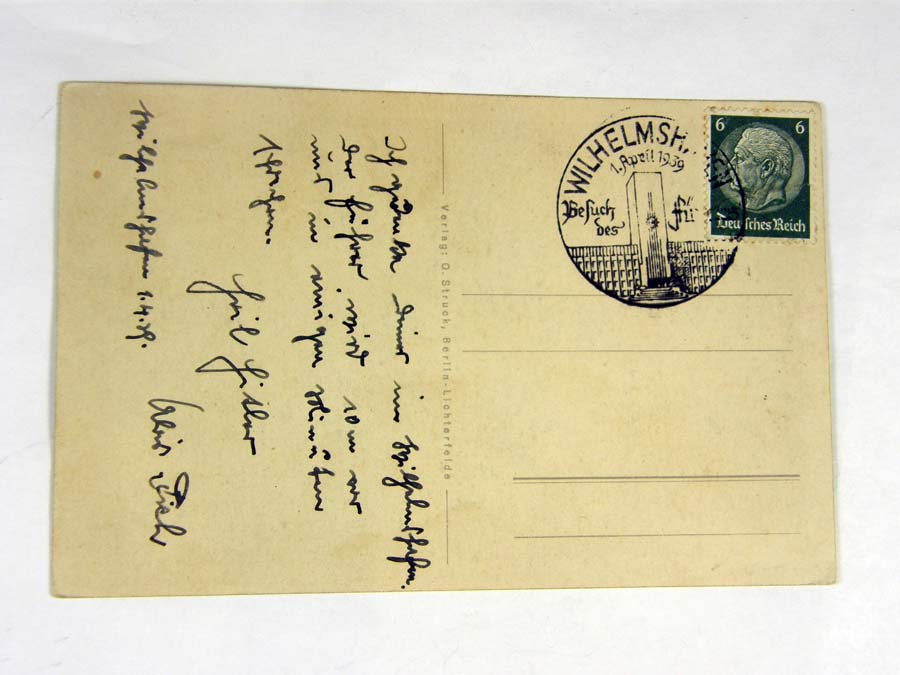 Wilhelmshafen 1.4.39.
Ich gedenke deiner in Wilhelmshafen.
Der Führer wird 10 m vor
mir in einigen Minuten
sprechen.
Heil Hitler
Verlag: O. Struck, Berlin-Lichterfelde
WILHELMSHAVEN
1. April 1939
Besuch
des
6 6
Deutsches Reich